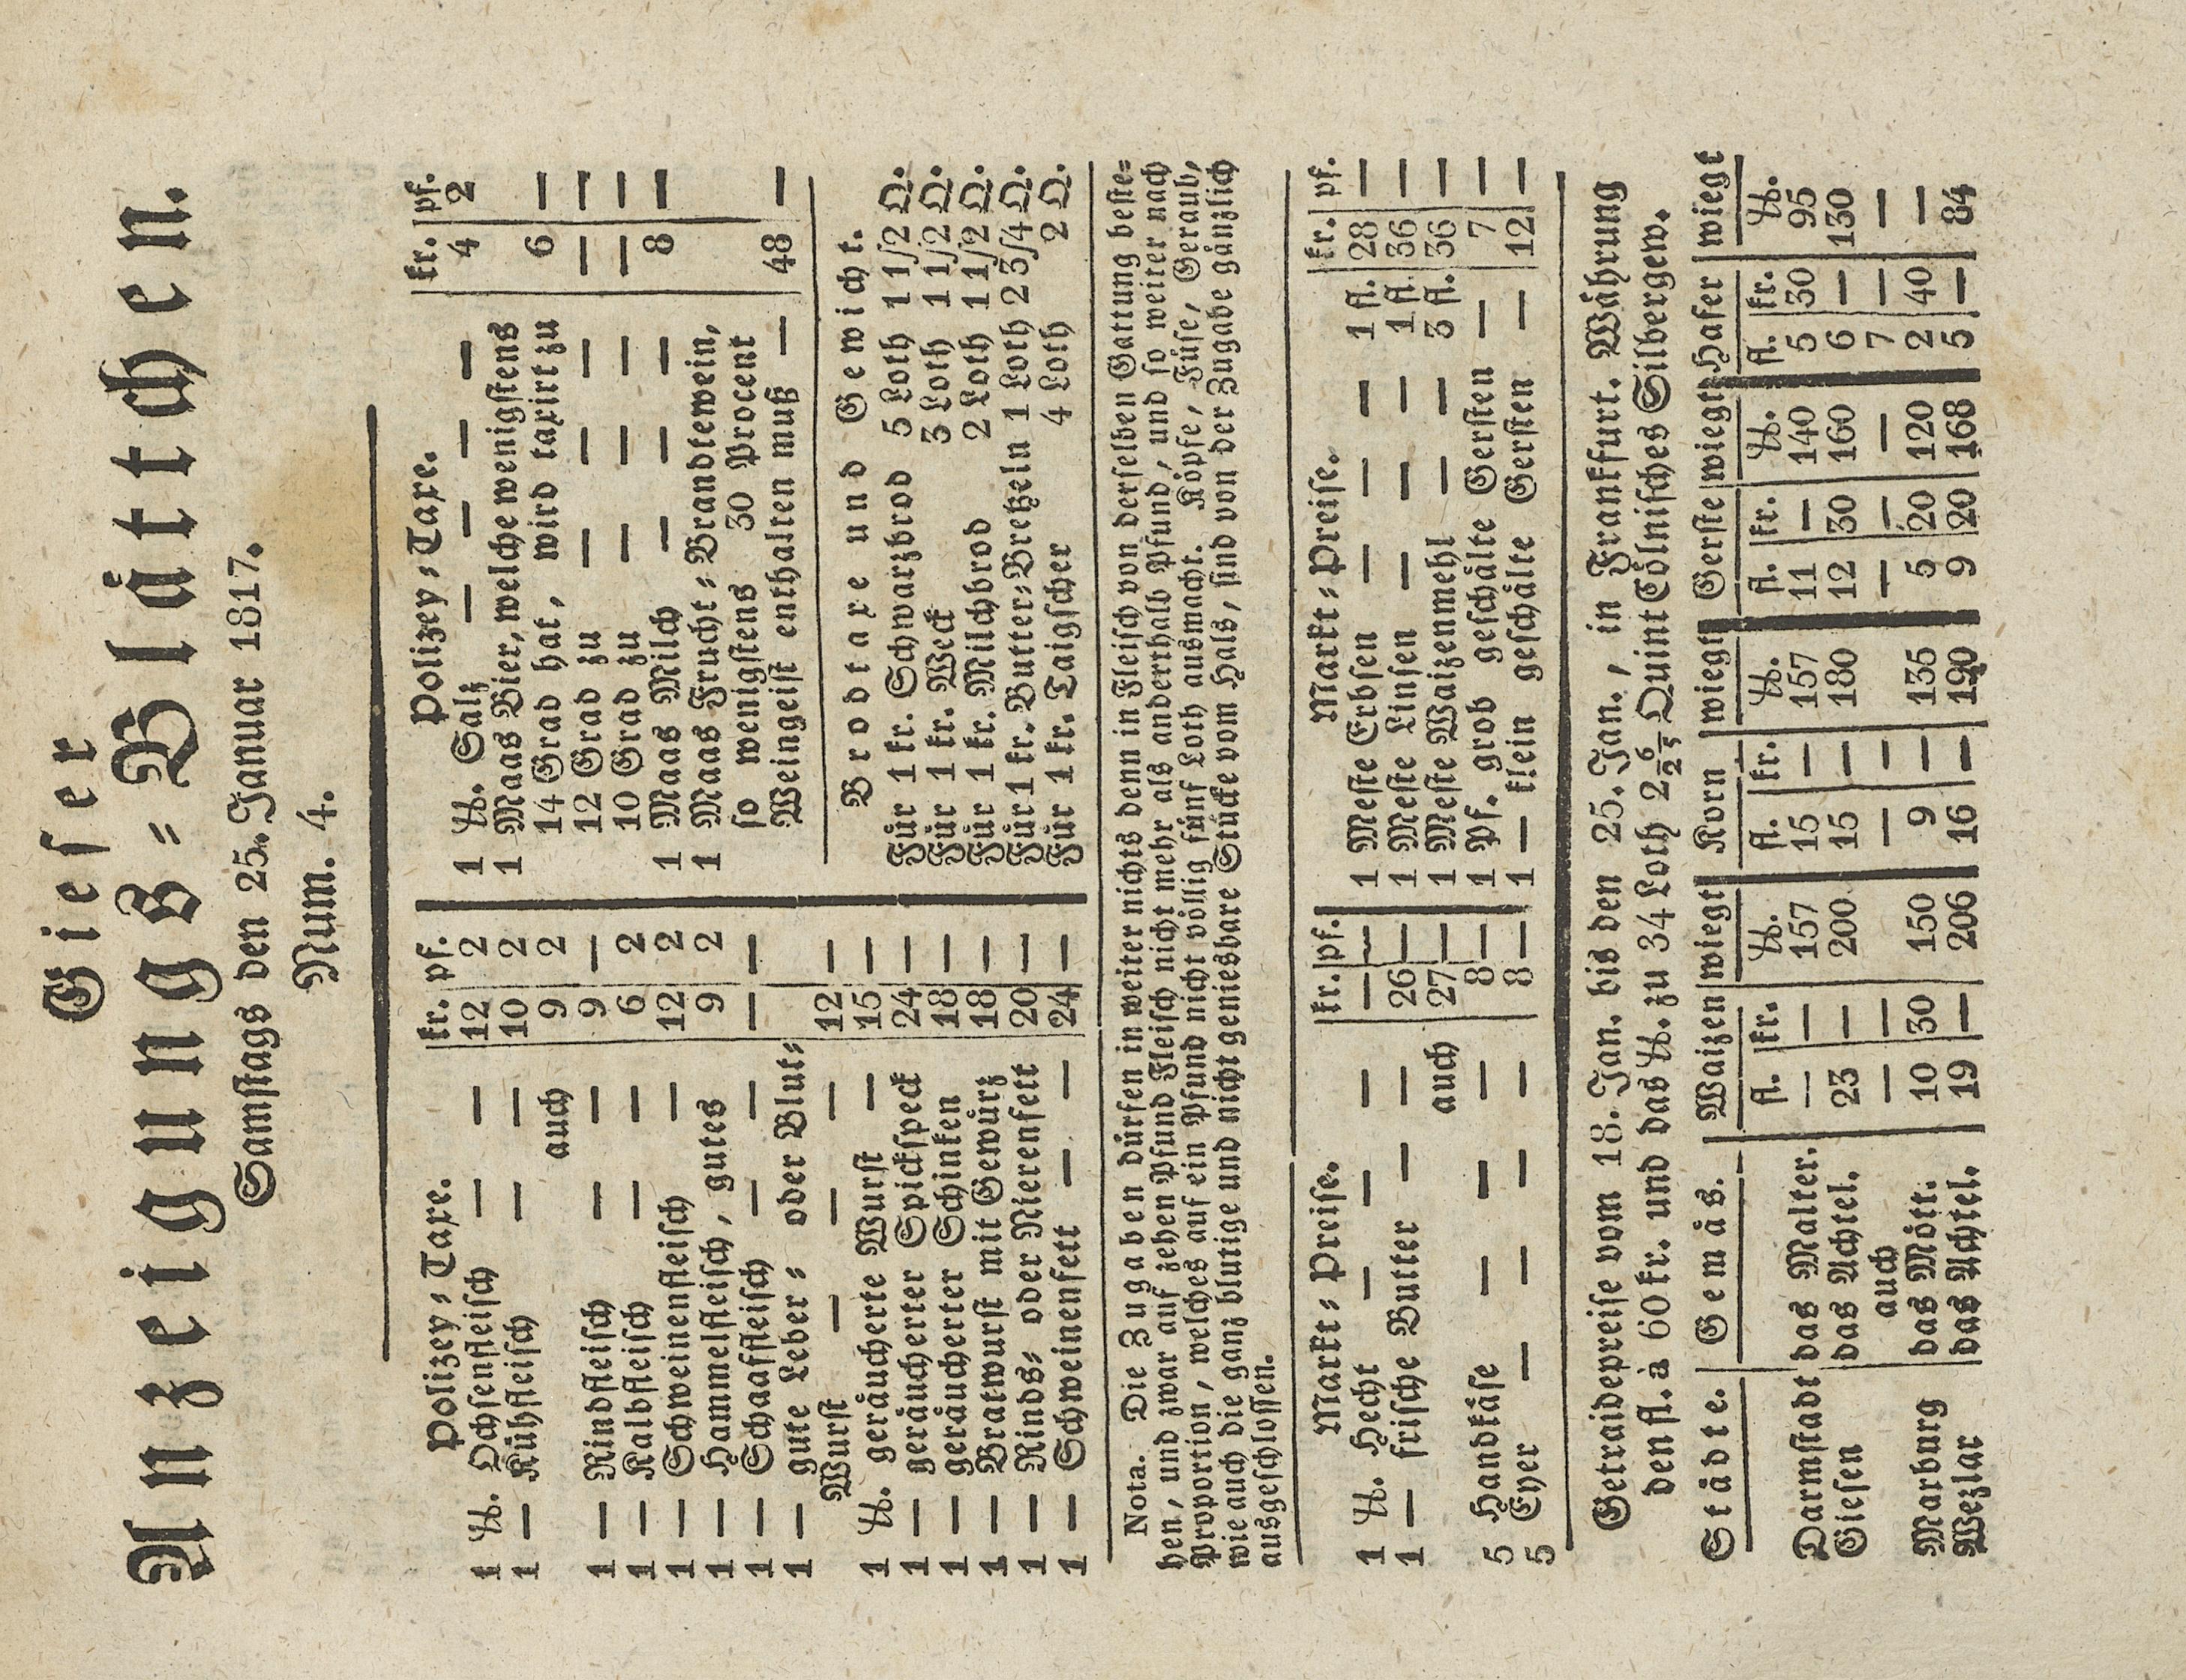 Gieser
Anzeigungs-Blättchen.
Samstags den 25. Januar 1817.
Num. 4.
Polizey-Taxe. kr. pf.
1 ℔. Ochsenfleisch — — 12 2
1 — Kühfleisch — — 10 2
auch 9 2
1 — Rindfleisch — — 9 —
1 — Kalbfleisch — — 6 2
1 — Schweinenfleisch — 12 2
1 — Hammelfleisch, gutes 9 2
1 — Schaaffleisch — — — —
1 — gute Leber- oder Blut-
Wurst — — — 12 —
1 ℔. geräucherte Wurst — 15 —
1 — geräucherter Spickspeck 24 —
1 — geräucherter Schinken 18 —
1 — Bratwurst mit Gewürz 18 —
1 — Rinds- oder Nierenfett 20 —
1 — Schweinenfett — — 24 —
Polizey-Taxe. kr. pf.
1 ℔. Salz — — — — 4 2
1 Maas Bier, welche wenigstens
14 Grad hat, wird taxirt zu 6 —
12 Grad zu — — — — —
10 Grad zu — — — — —
1 Maas Milch — — — 8 —
1 Maas Frucht-Brandtewein,
so wenigstens 30 Procent
Weingeist enthalten muß — 48 —
Brodtaxe und Gewicht.
Für 1 kr. Schwarzbrod 5 Loth 1 1/2 Q.
Für 1 kr. Weck 3 Loth 1 1/2 Q.
Für 1 kr. Milchbrod 2 Loth 1 1/2 Q.
Für 1 kr. Butter-Bretzeln 1 Loth 2 3/4 Q.
Für 1 kr. Taigscher 4 Loth 2 Q.
Nota. Die Zugaben dürfen in weiter nichts denn in Fleisch von derselben Gattung beste-
hen, und zwar auf zehen Pfund Fleisch nicht mehr als anderthalb Pfund, und so weiter nach
Proportion, welches auf ein Pfund nicht völlig fünf Loth ausmacht. Köpfe, Füse, Geraub,
wie auch die ganz blutige und nicht geniesbare Stücke vom Hals, sind von der Zugabe gänzlich
ausgeschlossen.
Markt-Preise. kr. pf.
1 ℔. Hecht — — — — —
1 — frische Butter — — 26 —
auch 27 —
5 Handkäse — — — 8 —
5 Eyer — — — — 8 —
Markt-Preise. kr. pf.
1 Meste Erbsen — — — 1 fl. 28 —
1 Meste Linsen — — — 1 fl. 36 —
1 Meste Waizenmehl — — 3 fl. 36 —
1 Pf. grob geschälte Gersten — 7 —
1 — klein geschälte Gersten — 12 —
Getraidepreise vom 18. Jan. bis den 25. Jan., in Frankfurt. Währung
den fl. à 60 kr. und das ℔. zu 34 Loth 2 6/25 Quint Cölnisches Silbergew.
Städte. Gemäs. Waizen wiegt Korn wiegt Gerste wiegt Hafer wiegt
fl. kr. ℔. fl. kr. ℔. fl. kr. ℔. fl. kr. ℔.
Darmstadt das Malter. — — 157 15 — 157 11 — 140 5 30 95
Giesen das Achtel. 23 — 200 15 — 180 12 30 160 6 — 130
auch — — — — — — — 7 — —
Marburg das Mött. 10 30 150 9 — 135 5 20 120 2 40 —
Wezlar das Achtel. 19 — 206 16 — 190 9 20 168 5 — 84